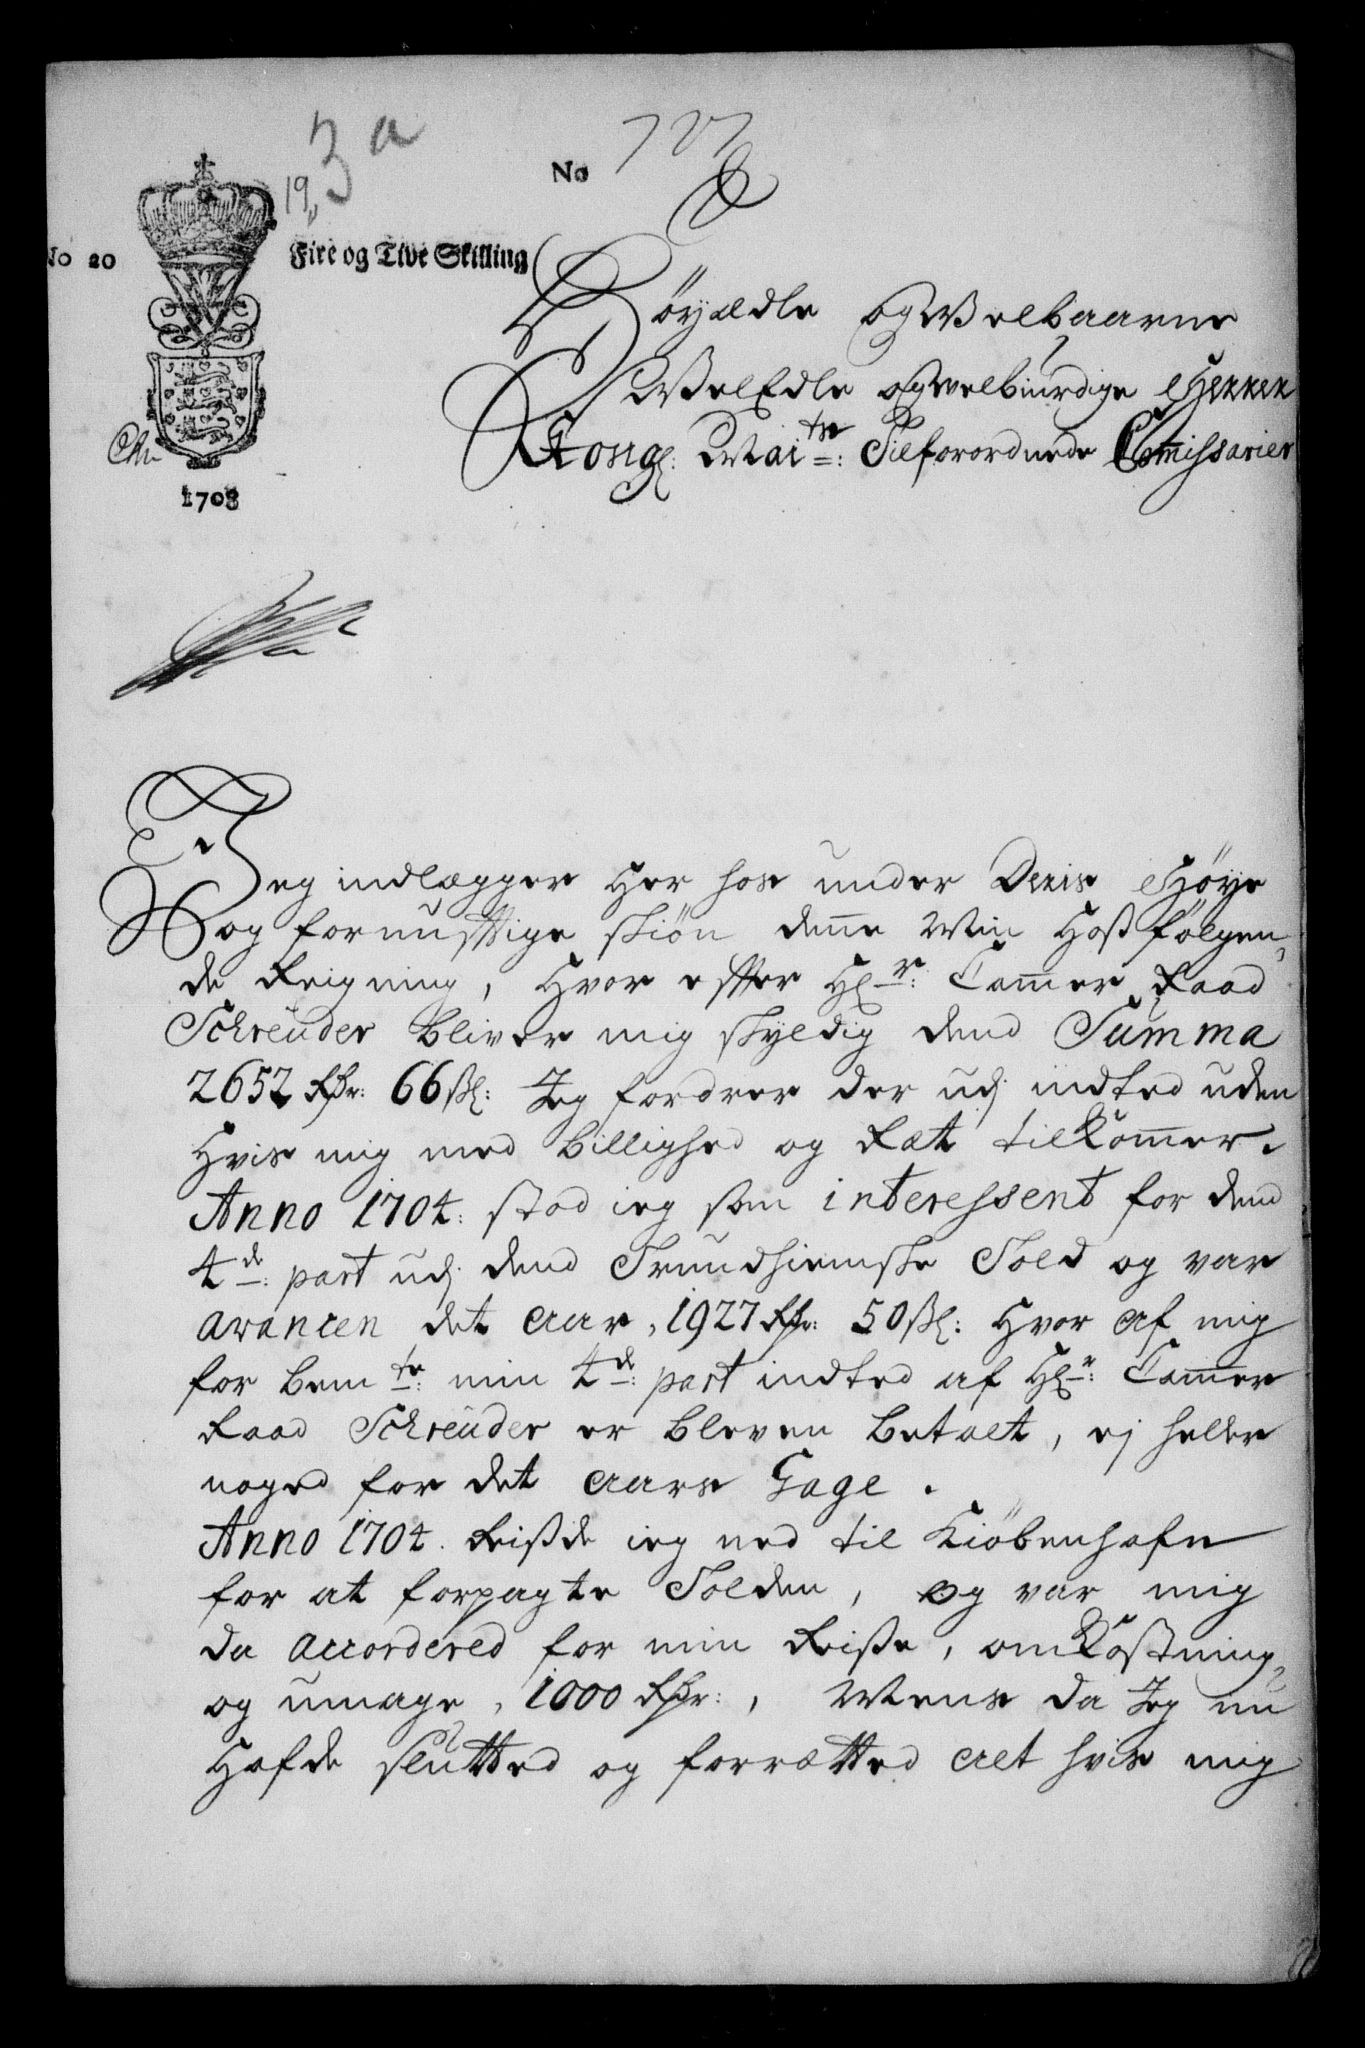 3 a
19
No 727
No 20
Fire og Tive Skilling
1708
Höyædle og Velbaarne
VelEdle og velbiurdige Herrer
Kongl: Maitts: Tilforordnede Commissarier
Jeg indlægger her hos under Deris Høye
og fornufftige skiön denne Min Hoßfølgen,
de Reigning, Hvor effter Hl:r: Camer Raad
Schreuder bliver mig skyldig dend Summa
2652 Rdr: 66 ßl: Jeg fordrer der udj indted uden
Hvis mig med billighed og Ræt tilkommer.
Anno 1704: stod ieg som interessent for dend
4de: part udj dend Trundhiemske Told og var
avancen det aar, 1927 Rdr: 50 ßl: Hvor af mig
for bemte: min 4de: part indted af Hlr: Cammer
Raad Schreuder er bleven betalt, ej heller
noged for det aars Gage.
Anno 1704. Reißde ieg ned til Kiöbenhafn
for at forpagte Tolden, og var mig
da accordered for min Reiße, omkostning,
og umage, 1000 Rdr:, Mens da Jeg nu
Hafde slutted og forrætted alt hvis mig